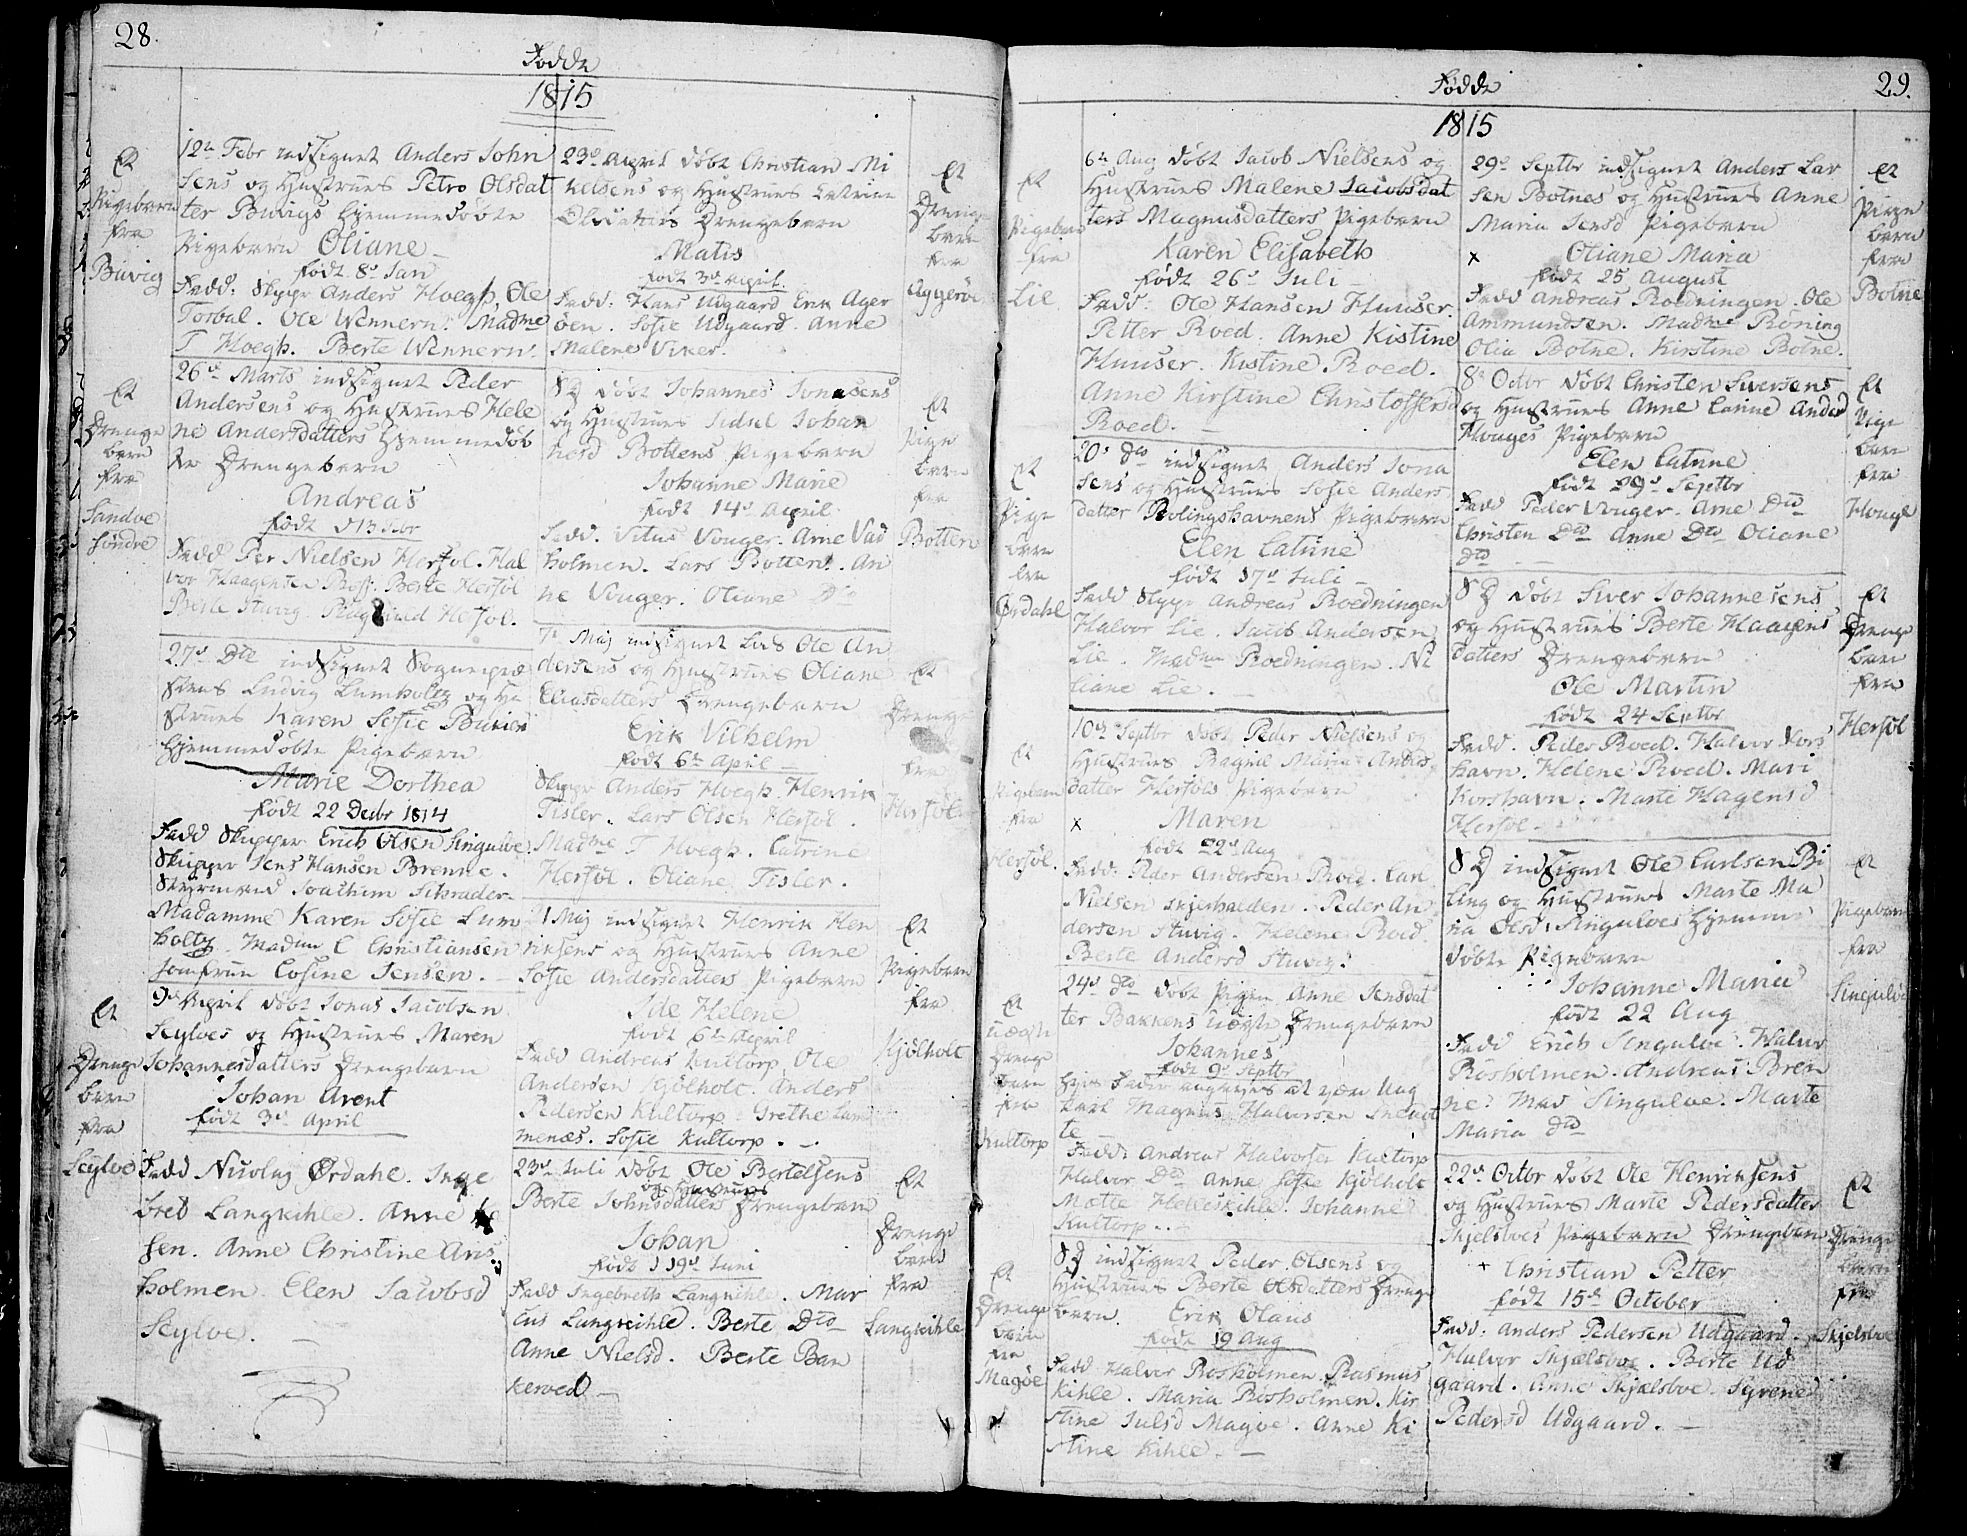 28.
Fødde
1815
Et
Pigebarn
fra
Buvig
12te Febr indsignet Anders John
sens og Hustrues Petro Olsdat
ter Buvigs hjemmedøbte
Pigebarn Oliane
født 8de Jan
Fadd: Skippr Anders Hoegh. Ole
Torbal. Ole Wennern. Madme
T Hoegh. Berte Wennern.
Et
Drenge
barn
fra
Sandøe
søndre
26de Marts indsignet Peder
Andersens og Hustrues Hele
ne Andersdatters hjemmedøb
te Drengebarn
Andreas
født d 13 Febr
Fadd Per Nielsen Hersøl. Hal
vor Haagensen Ross. Berte Hersøl
Berte Stuvig. Ragnild Hersøl.
27de Dto indsignet Sognepræ
stens Ludvig Lumholtz og Hu
strues Karen Sofie Buvien
hjemmedøbte Pigebarn
Marie Dorthea
født 22 Decbr 1814
Fadd Skipper Erich Olsen Singulve.
Skipper Jens Hansen Brenne.
Styrmand Joachim Schrader.
Madamme Karen Sofie Lum
holtz. Madm C Christiansen
Jomfrue Cosine Jensen.
Et
Drenge
barn
fra
Scylvo
9de April døbt Jonas Jacobsen
Scylves og Hustrues Maren
Johannesdatters Drengebarn
Johan Arent
født 3de April
Fadd Nicolay Ørdahl. Inge
bret Langkihle. Anne
sen. Anne Christine Aris
holmen. Elen Jacobsd
Scylve.
23de April døbt Christian Mi
kelsens og Hustrues Catrine
Olsdatters Drengebarn
Matis
født 3de April.
Fadd: Hans Udgaard Erik Ager
øen. Sofie Udgaard. Anne
Malene Viker.
Et
Drenge
barn
fra
Aggerøen
S D døbt Johannes Jonasens
og Hustrues Sidsel Johan
nesd Bottens Pigebarn
Johanne Marie
født 14de April
Fadd. Vitus Vouger. Arne Vad
holmen. Lars Botten. An
ne Vouger. Oliane Do
Et
Pige
barn
fra
Botten
7de Maj indsignet Lars Ole An
dersens og Hustrues Oliane
Eliasdatters Drengebarn
Erik Vilhelm
født 6te April
Skippr Anders Hoegh. Henrik
Tisler. Lars Olsen Hersøl.
Madme T Hoegh. Catrine
Hersøl. Oliane Tisler.
Et
Drenge
fra
Hersøl
21 Maj indsignet Henrik Hen
riksens og Hustrues Anne
Sofie Andersdatters Pigebarn
Ide Helene
født 6te April
Fadd Andreas Kultorp Ole
Andersen Kjølholt. Anders
Pedersen Kultorp. Grethe Lam
menæs. Sofie Kultorp.
Et
Pigebarn
fra
Kjølholt
23de Juli døbt Ole Bertelsens
og Hustrues
Berte Johnsdatters Drengebarn
Johan
født d 19de Juni
Fadd Ingebreth Langkihle. Mar
cus Langkihle. Berte Dto
Anne Nielsd. Berte Ban
kerved
Et
Drenge
barn
fra
Langkihle
29.
Fødde
1815
Et
Pigebarn
fra
Lie
6te Aug døbt Jacob Nielsens og
Hustrues Malene Jacobsdat
ters Magnusdatters Pigebarn
Karen Elisabeth
født 26de Juli
Fadd: Ole Hansen Huuser.
Petter Roed. Anne Kistine
Huuser. Kistine Roed.
Anne Kirstine Christoffersd
Roed.
Et
Pige
barn
fra
Ørdahl
20de dto indsignet Anders Jona
sens og Hustrues Sofie Anders
datter Rolingshavnens Pigebarn
Elen Catrine
født 17de Juli
Fadd Skippr Andreas Roedningen
Halvor Lie. Jacob Andersen
Lie. Madm Roedningen. Ni
liane Lie.
Et
Pigebarn
fra
Hersøl.
10de Septbr døbt Peder Nielsens og
Hustrues Ragnil Maria Anders
datter Hersøls Pigebarn
x Maren
født 22de Aug
Fadd: Peder Andersen Roed. Carl
Nielsen Skjerhalden. Peder An
dersen Stuvig. Helene Roed.
Berte Andersd Stuvig.
Et
uægte
Drenge
barn
fra
Kultorp
24de dto døbt Pigen Anne Jensdat
ter Bakkens uægte Drengebarn
Johannes
født 9de Septbr
Fader angives at være Ung
karl Magnus Halvorsen
te
Fadd: Andreas Halvorsen Kultorp
Halvor Dto Anne Sofie Kjølholt
Mætte Helleskihle. Johanne
Kultorp.
Et
Drenge
barn
fra
Magøe
S D indsignet Peder Olsens og
Hustrues Berte Olsdatters Drenge
barn. Erik Olaus
født 19 Aug
Fadd Halvor Rosholmen. Rasmus
Kihle. Maria Rosholmen. Kir
stine Julsd Magøe. Anne Ki
stine Kihle.
29de Septbr indsignet Anders Lar
sen Botnes og Hustrues Anne
Maria Jensd Pigebarn
x Oliane Maria
født 25 August
Fadd Andreas Roedningen. Ole
Ammundsen. Madme Röning
Olia Botne. Kirstine Botne.
Et
Pige
barn
fra
Botne
8de Octbr døbt Christen Siversens
og Hustrues Anne Catrine Andersd
Houges Pigebarn
Elen Catrine
født 29de Septbr
Fadd Peder Vouger. Arne Dto
Christen Dto Anne Dto Oliane
dto
Et
Pige
barn
fra
Hougl
S D døbt Siver Johannesens
og Hustrues Berte Haagens
datters Drengebarn
Ole Martin
født 24 Septbr
Fadd. Peder Roed. Halvor Kors
havn. Helene Roed. Mari
Korshavn. Marte Hagensd
Hersøl.
Et
Drenge
barn
fra
Hersøl
S D indsignet Ole Carlsen Bi
ling og Hustrues Marte Ma
ria Olsd Singuloes hjemme
døbte Pigebarn
Johanne Maria
født 22 Aug
Fadd Erich Singuloe. Halvor
Rosholmen. Andreas Bren
ne. Singuloe. Marte
Maria dto
Et
Pigebarn
fra
Singuløe
22de Octbr døbt Ole Henriksens
og Hustrues Marte Pedersdatter
Skjelsboes Pigebarn Drengebarn
+ Christian Petter
født 15de October
Fadd: Anders Pedersen Udgaard.
Halvor Skjælsboe. Berte Ud
gaard. Anne Skjælsboe. Syrene
Pedersd Udgaard.
Et
Drenge
barn
fra
Skjelsboe